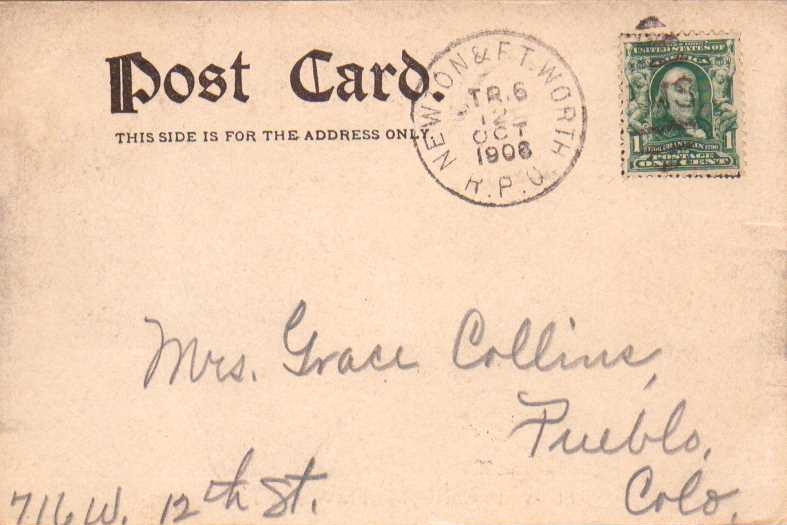 Post Card.
THIS SIDE IS FOR THE ADDRESS ONLY.
NEWTON & FT. WORTH
TR. 6
12
OCT
1906
R.P.O.
UNITED STATES OF
AMERICA
1 1
POSTAGE
ONE CENT
Mrs. Grace Collins,
Pueblo,
Colo,
716 W. 12th St.